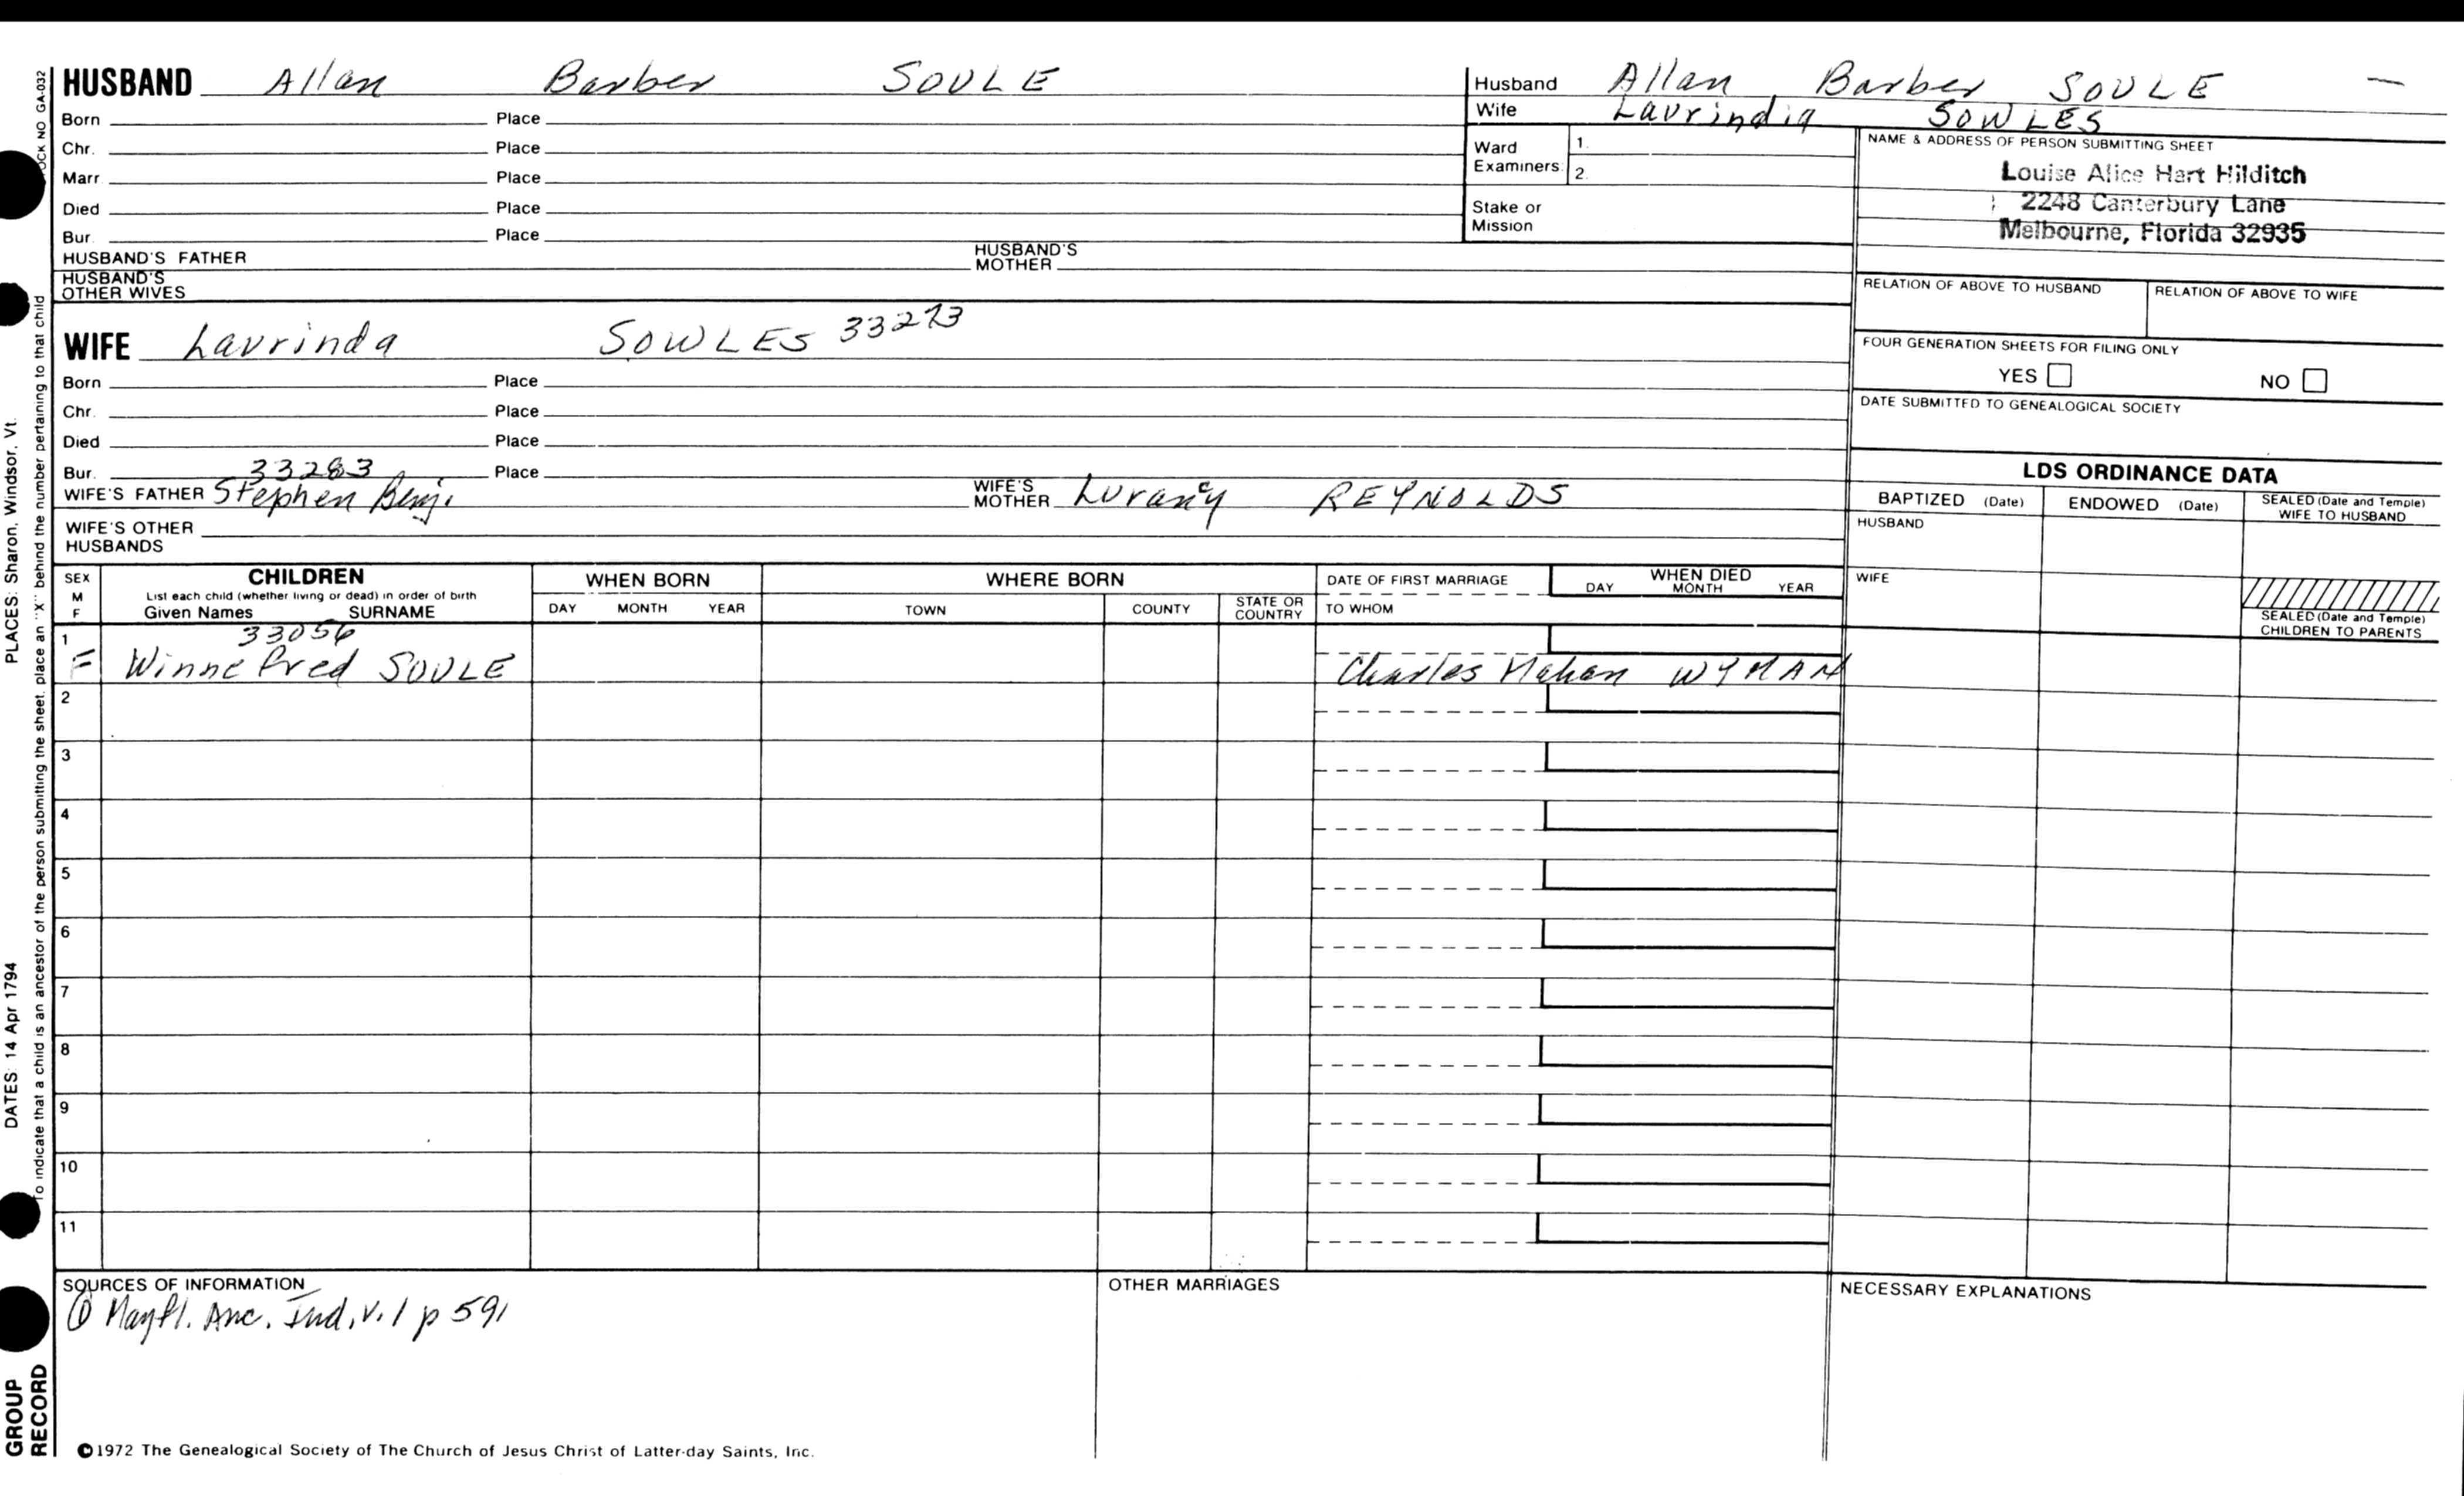 HUSBAND Allan Barber SOULE
Born Place
Chr. Place
Marr Place
Died Place
Bur. Place
HUSBAND'S FATHER HUSBAND'S MOTHER
HUSBAND'S OTHER WIVES
WIFE Laurinda SOWLES 33273
Born Place
Chr. Place
Died Place
Bur. 33283 Place
WIFE'S FATHER Stephen Benj. WIFE'S MOTHER Lurancy REYNOLDS
WIFE'S OTHER HUSBANDS
Husband Allan Barber SOULE —
Wife Laurindia SOWLES
Ward Examiners: 1.
2.
Stake or Mission
NAME & ADDRESS OF PERSON SUBMITTING SHEET
Louise Alice Hart Hilditch
2248 Canterbury Lane
Melbourne, Florida 32935
RELATION OF ABOVE TO HUSBAND RELATION OF ABOVE TO WIFE
FOUR GENERATION SHEETS FOR FILING ONLY
YES NO
DATE SUBMITTED TO GENEALOGICAL SOCIETY
LDS ORDINANCE DATA
BAPTIZED (Date) ENDOWED (Date) SEALED (Date and Temple) WIFE TO HUSBAND
HUSBAND
WIFE
SEALED (Date and Temple) CHILDREN TO PARENTS
SEX M F CHILDREN WHEN BORN WHERE BORN DATE OF FIRST MARRIAGE WHEN DIED
List each child (whether living or dead) in order of birth
Given Names SURNAME DAY MONTH YEAR TOWN COUNTY STATE OR COUNTRY TO WHOM DAY MONTH YEAR
1 33056
F Winnefred SOULE Charles Mahan WYMAN
2
3
4
5
6
7
8
9
10
11
SOURCES OF INFORMATION
① Mayfl. Anc. Ind. v. 1 p 591
OTHER MARRIAGES
NECESSARY EXPLANATIONS
©1972 The Genealogical Society of The Church of Jesus Christ of Latter-day Saints, Inc.
OCK NO GA-032
To indicate that a child is an ancestor of the person submitting the sheet, place an "X" behind the number pertaining to that child
PLACES: Sharon, Windsor, Vt.
DATES: 14 Apr 1794
GROUP
RECORD